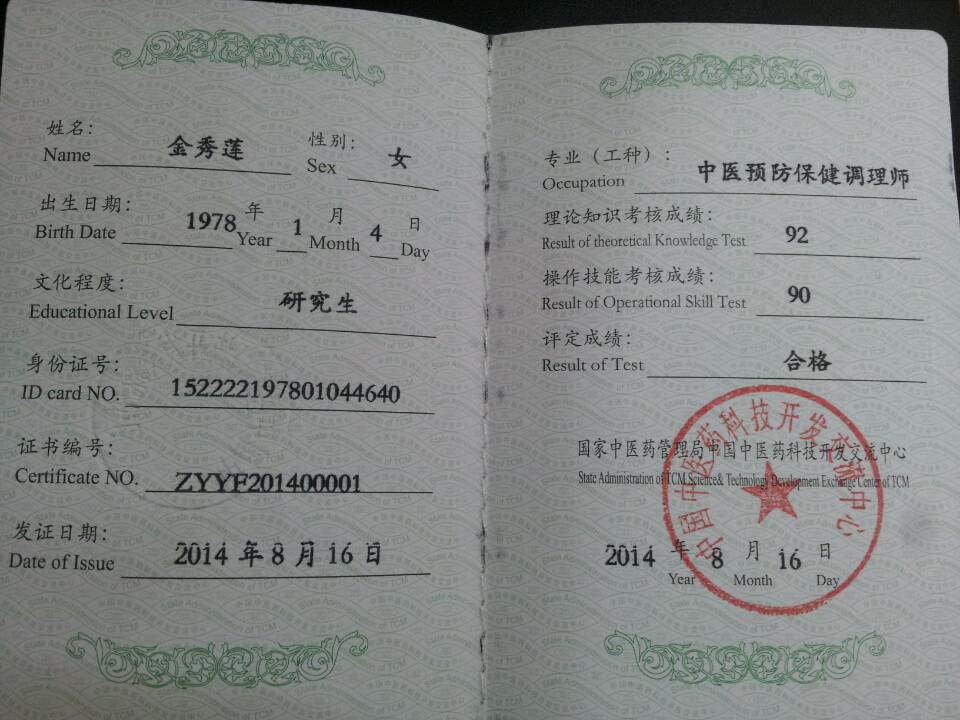 姓名: 金秀莲 性别: 女
Name Sex
出生日期: 1978 年 1 月 4 日
Birth Date Year Month Day
文化程度: 研究生
Educational Level
身份证号: 152222197801044640
ID card NO.
证书编号:
Certificate NO. ZYYF201400001
发证日期: 2014 年 8 月 16 日
Date of Issue
专业（工种）: 中医预防保健调理师
Occupation
理论知识考核成绩: 92
Result of theoretical Knowledge Test
操作技能考核成绩: 90
Result of Operational Skill Test
评定成绩: 合格
Result of Test
国家中医药管理局中国中医药科技开发交流中心
State Administration of TCM Science& Technology Development Exchange Center of TCM
中国中医药科技开发交流中心
2014 年 8 月 16 日
Year Month Day